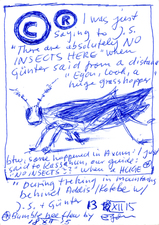 © ® I was just
saying to J.S.
"There are absolutely NO
INSECTS HERE" when
Günter said from a distance
"Egon, look, a
huge grasshopper
btw. same happened in Axum: I just
said to Kassahun, our guide:
"NO INSECTS ??" when a HUGE ⊕
During treking in Mountains
behind Addis/Kotebe w/
J.S. + Günter 13 XII 15
⊕ Bumble bee flew by